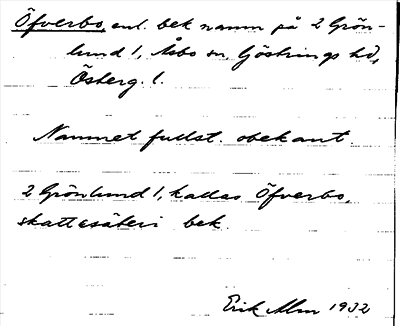 Öfverbo, enl. bek namn på 2 Grön-
lund 1, Åsbo sn Göstrings hd,
Österg. l.
Namnet fullst. obekant.
2 Grönlund 1, kallas Öfverbo,
skattesäteri bek.
Erik Alm 1932